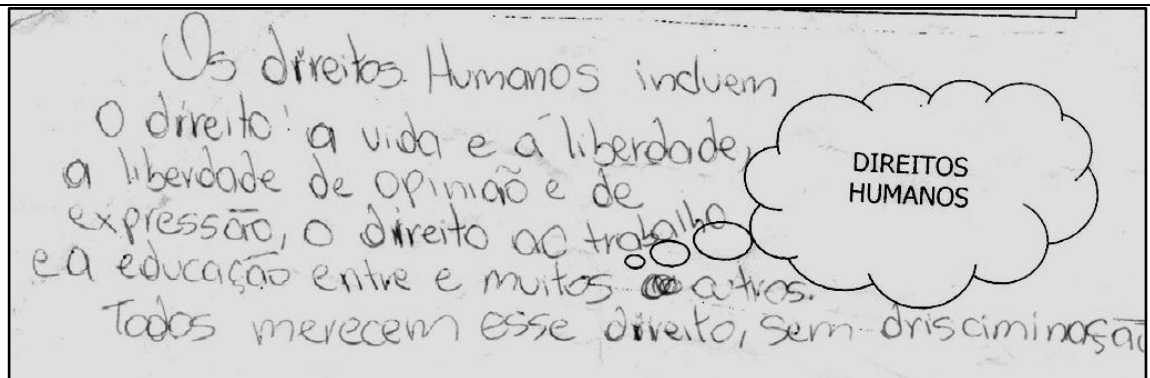 Os direitos Humanos incluem
O direito a vida e a liberdade,
a liberdade de opinião e de
expressão, o direito ao trabalho
e a educação entre e muitos outros.
Todos merecem esse direito, sem drisciminasão
DIREITOS
HUMANOS